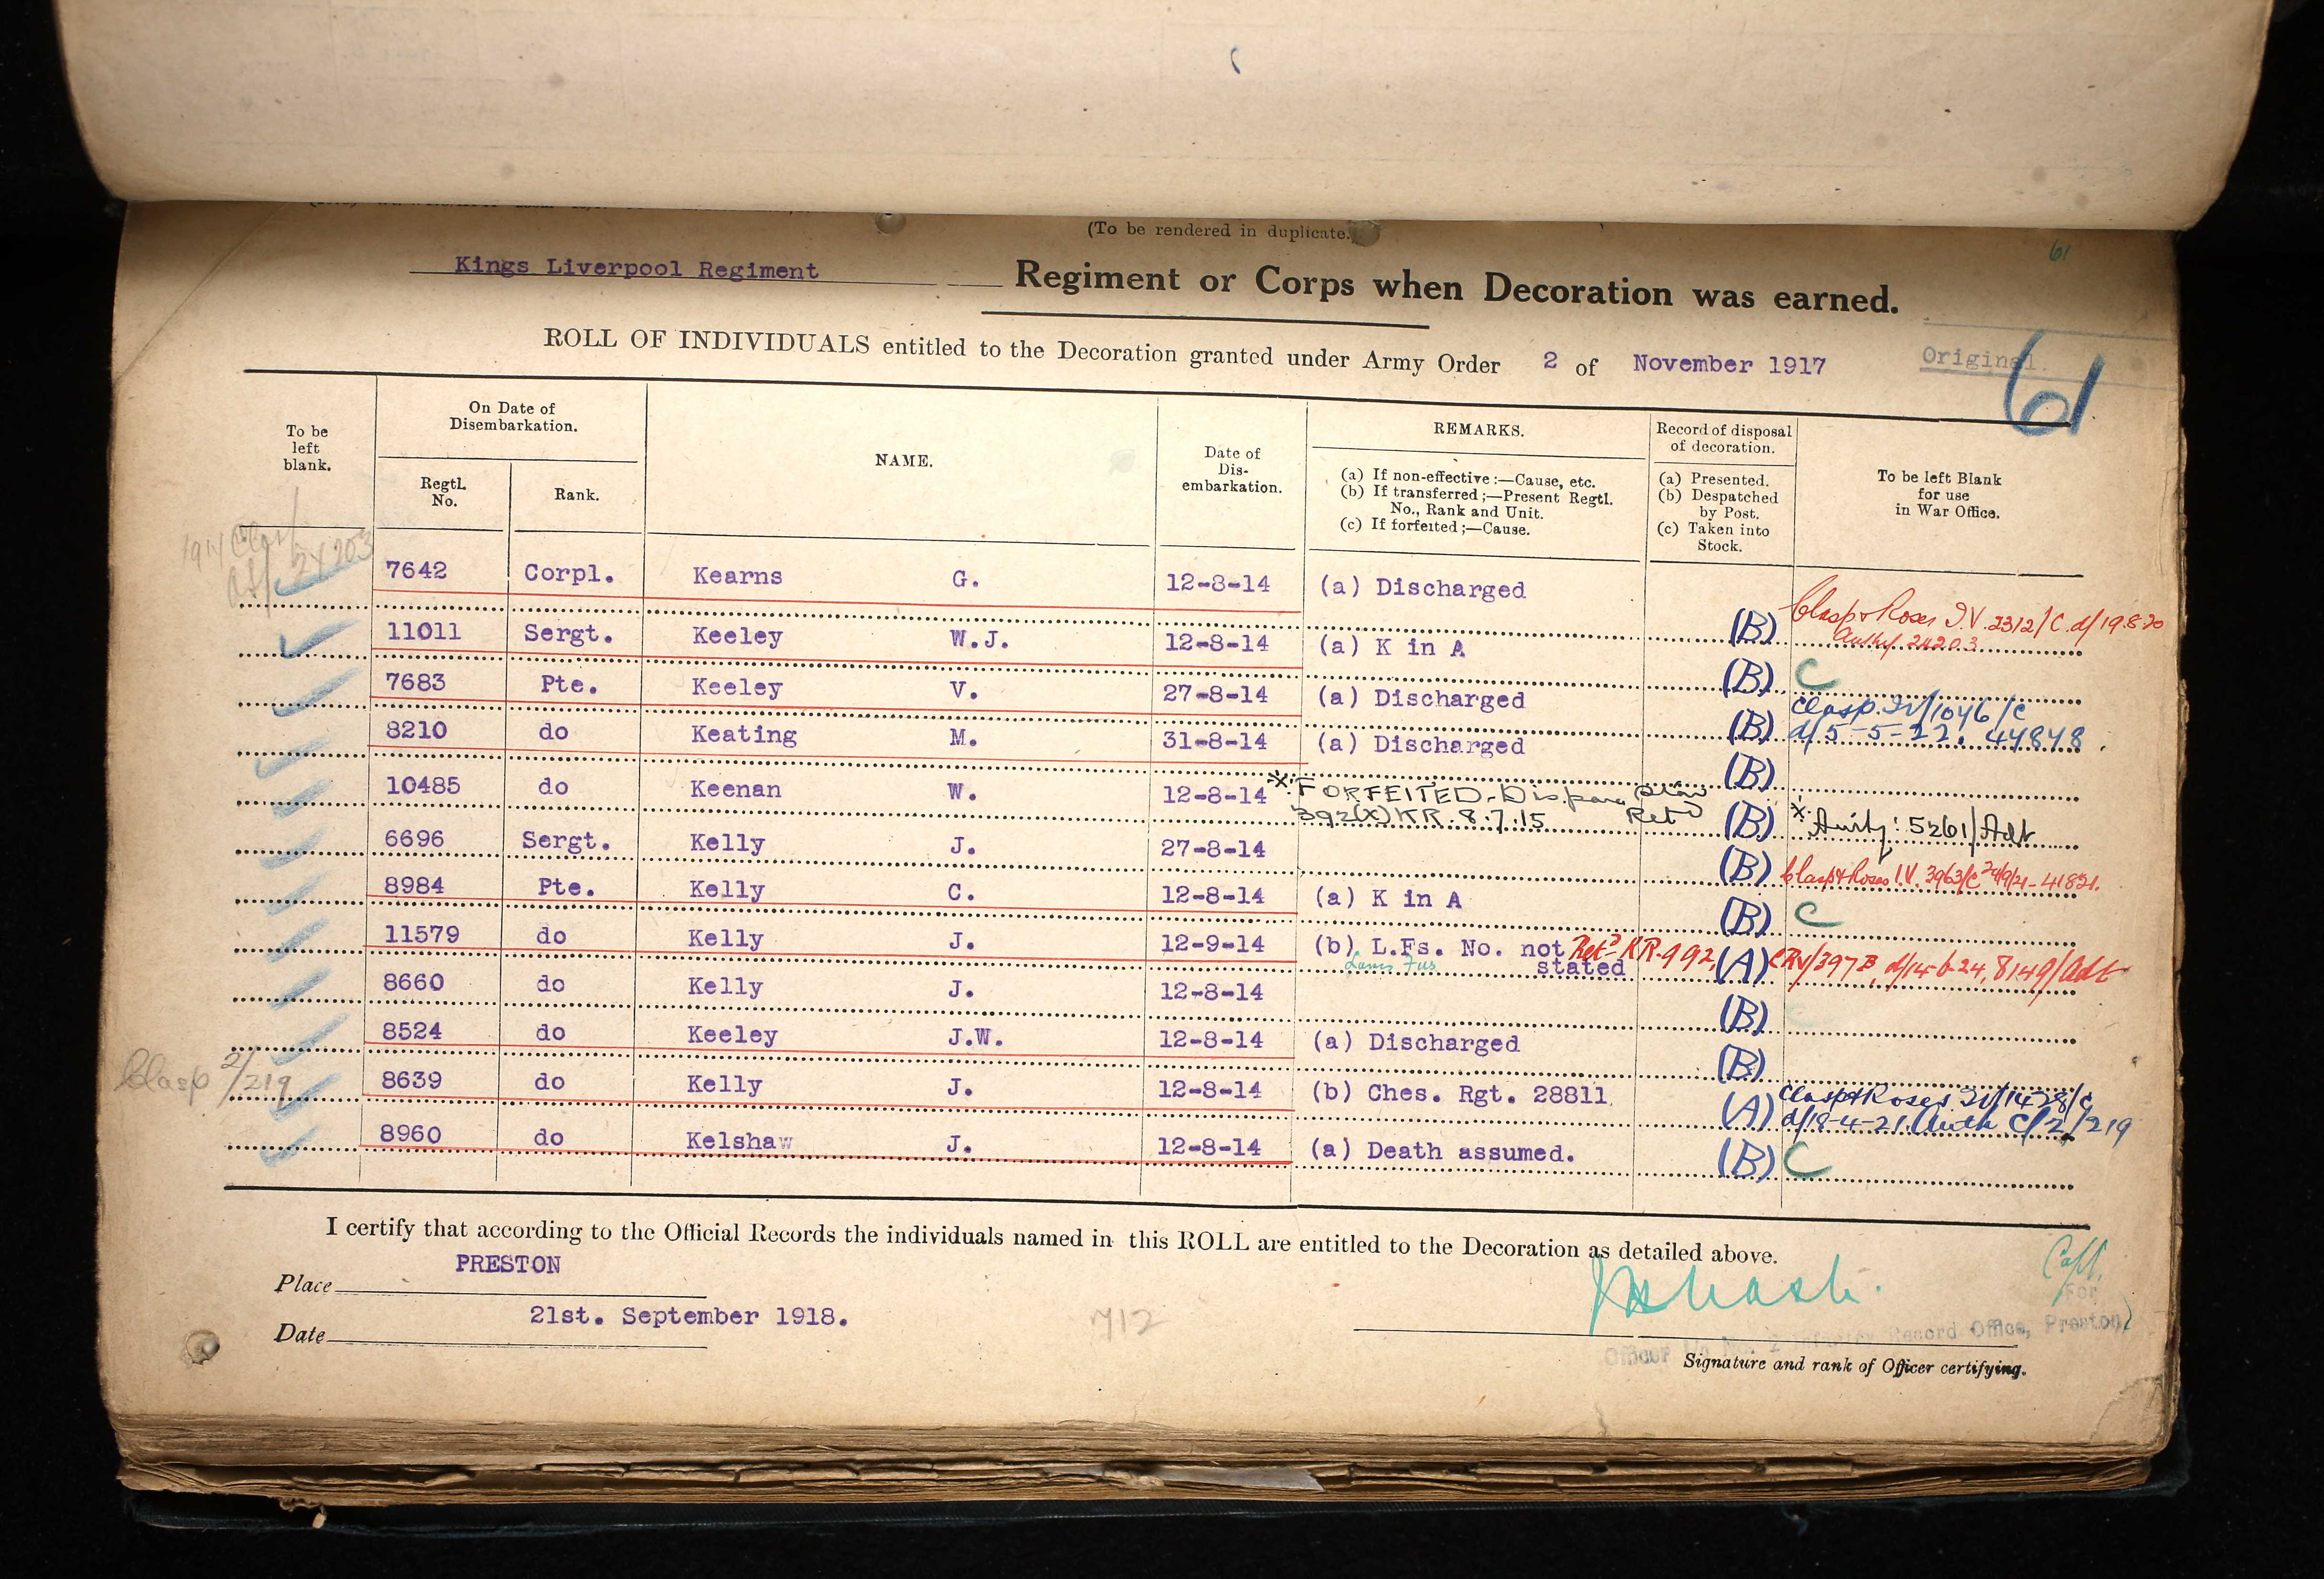 (To be rendered in duplicate.)
61
Kings Liverpool Regiment Regiment or Corps when Decoration was earned.
ROLL OF INDIVIDUALS entitled to the Decoration granted under Army Order 2 of November 1917
Original.
61
To be
left
blank.
On Date of
Disembarkation.
Regtl.
No.
Rank.
NAME.
Date of
Dis-
embarkation.
REMARKS.
(a) If non-effective:—Cause, etc.
(b) If transferred;—Present Regtl.
No., Rank and Unit.
(c) If forfeited;—Cause.
Record of disposal
of decoration.
(a) Presented.
(b) Despatched
by Post.
(c) Taken into
Stock.
To be left Blank
for use
in War Office.
1914 Clasp
24203
7642 Corpl. Kearns G. 12-8-14 (a) Discharged (B) Clasp & Roses I.V. 2312/C. d/19.8.20
Authy 24203
11011 Sergt. Keeley W.J. 12-8-14 (a) K in A (B) C
7683 Pte. Keeley V. 27-8-14 (a) Discharged (B) Clasp. IV/1046/C
d/5-5-22. 44848.
8210 do Keating M. 31-8-14 (a) Discharged (B)
10485 do Keenan W. 12-8-14 * FORFEITED
392(X) KR. 8.7.15 Retd (B) * Auity: 5261/Adt
6696 Sergt. Kelly J. 27-8-14 (B) Clasp & Roses I.V. 3963/C - 41821.
8984 Pte. Kelly C. 12-8-14 (a) K in A (B) C
11579 do Kelly J. 12-9-14 (b) L.Fs. No. not Retd KR. 992, (A) d/14-6-24, 8149/Adt
Lancs Fus stated
8660 do Kelly J. 12-8-14 (B)
8524 do Keeley J.W. 12-8-14 (a) Discharged (B)
Clasp 2/219
8639 do Kelly J. 12-8-14 (b) Ches. Rgt. 28811 (A) Clasp & Roses IV/1428/C
d/19-4-21. Auth C/2/219
8960 do Kelshaw J. 12-8-14 (a) Death assumed. (B) C
I certify that according to the Official Records the individuals named in this ROLL are entitled to the Decoration as detailed above.
Place PRESTON
Date 21st. September 1918.
712
Capt.
For
Officer Infantry Record Office, Preston
Signature and rank of Officer certifying.